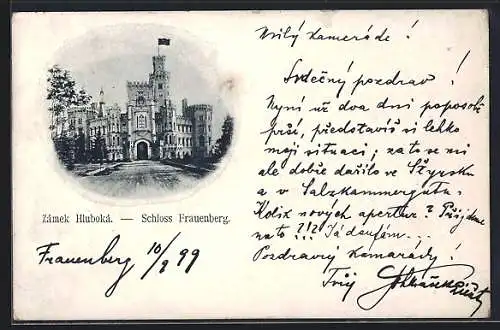 Milý kamaráde!
Srdečný pozdrav!
Nyní už dva dni poposobě
prší, představíš si lehko
moji situaci; za to se mi
ale dobře dařilo ve Štyrsku
a v Salzkammergutu.
Kolik nových apertur? Přijdeme
na to ?!?! Já doufám...
Pozdravuj kamarády!
Tvůj
Zámek Hluboká. — Schloss Frauenberg.
Frauenberg 10/9 99